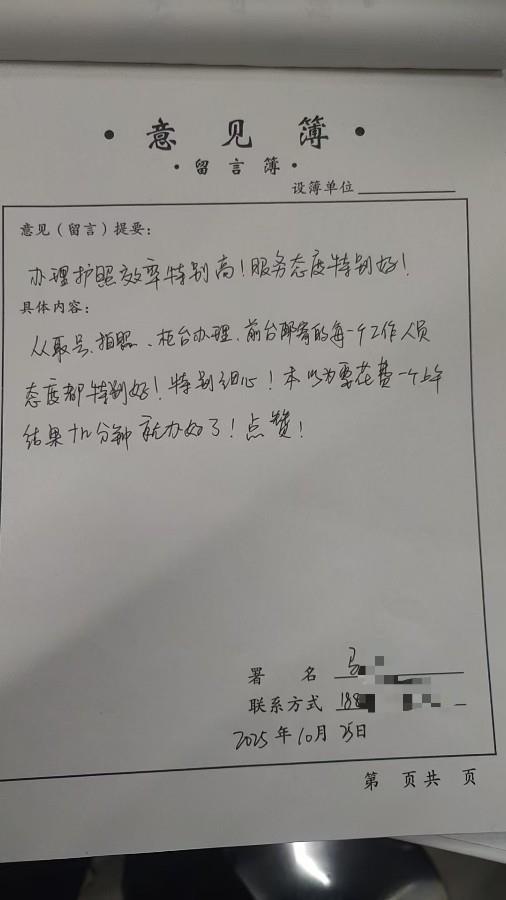 · 意 见 簿 ·
· 留 言 簿 ·
设簿单位
意见（留言）提要：
办理护照效率特别高！服务态度特别好！
具体内容：
从取号、拍照、柜台办理、前台邮寄的每一个工作人员
态度都特别好！特别细心！本以为要花费一个上午
结果十几分钟就办好了！点赞！
署 名 马
联系方式 188
2025年10月25日
第 页共 页